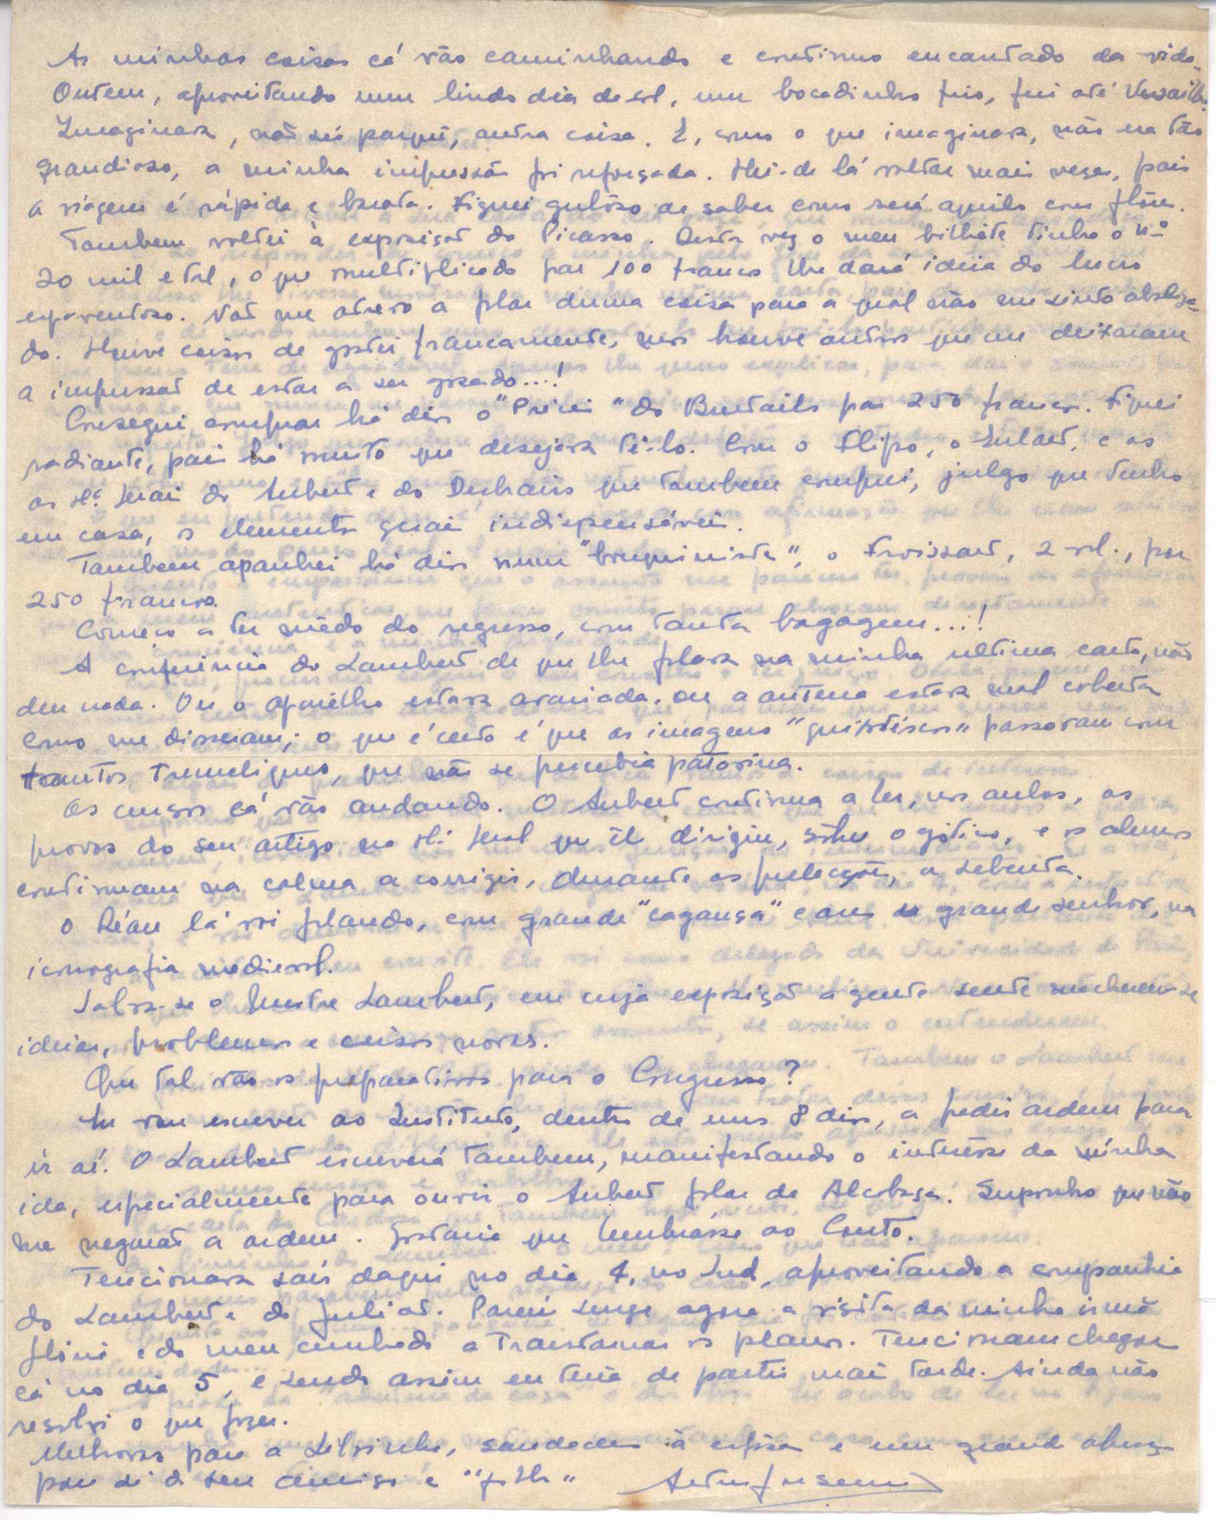 As minhas coisas cá vão caminhando e continuo encantado da vida.
Ontem, aproveitando um lindo dia de sol, um bocadinho frio, fui até Versailles.
Imaginava, não sei porquê, outra coisa. E, como o que imaginava, não era tão
grandioso, a minha impressão foi reforçada. Hei-de lá voltar mais vezes, pois
a viagem é rápida e barata. Fiquei gulôso de saber como será aquilo com flôres.
Tambem voltei à exposição do Picasso. Desta vez o meu bilhete tinha o nº
20 mil e tal, o que multiplicado por 100 francos lhe dará ideia do lucro
espaventoso. Não me atrevo a falar duma coisa para a qual não me sinto abaliza-
do. Houve coisas de gostei francamente, mas houve outras que me deixaram
a impressão de estar a ser gozado...!
Consegui comprar há dias o "Précis" do Brutails por 250 francos. Fiquei
radiante, pois há muito que desejava tê-lo. Com o Flipo, o Enlart, e as
as H.ª Gerais do Aubert e do Deshairs que tambem comprei, julgo que tenho
em casa, os elementos gerais indispensáveis.
Tambem apanhei há dias num "bouquiniste", o Froissart, 2 vol., por
250 francos.
Começo a ter mêdo do regresso, com tanta bagagem...!
A conferencia do Lambert de que lhe falava na minha ultima carta, não
deu nada. Ou o aparêlho estava avariado, ou a antena estava mal coberta
como me disseram; o que é certo é que as imagens passaram com
tantos tremeliques, que não se percebia patavina.
Os cursos cá vão andando. O Aubert continua a ler, nas aulas, as
provas do seu artigo na H. Geral que êle dirigiu, sôbre o gótico, e os alunos
continuam na calma a corrigir, durante as prelecções, a sebenta.
O Réau lá vai falando, com grande "cagança" e ares de grande senhor, na
iconografia medieval.
Salva-se o Mestre Lambert, em cuja exposição a gente sente remecherem-se
ideias, problemas e coisas novas.
Que tal vão os preparativos para o Congresso?
Eu vou escrever ao Instituto, dentro de uns 8 dias, a pedir ordem para
ir aí. O Lambert escreverá tambem, manifestando o interêsse da minha
ida, especialmente para ouvir o Aubert falar de Alcobaça. Suponho que não
me negarão a ordem. Gostaria que lembrasse ao Couto.
Tencionava sair daqui no dia 4, no Sud, aproveitando a companhia
do Lambert e do Juliat. Porém surge agora a visita da minha irmã
e do meu cunhado a transtornar os planos. Tencionam chegar
cá no dia 5, e sendo assim eu teria de partir mais tarde. Ainda não
resolvi o que fazer.
Melhoras para a Silvinha, saudades à espôsa e um grande abraço
para si do seu amigo e "filho"